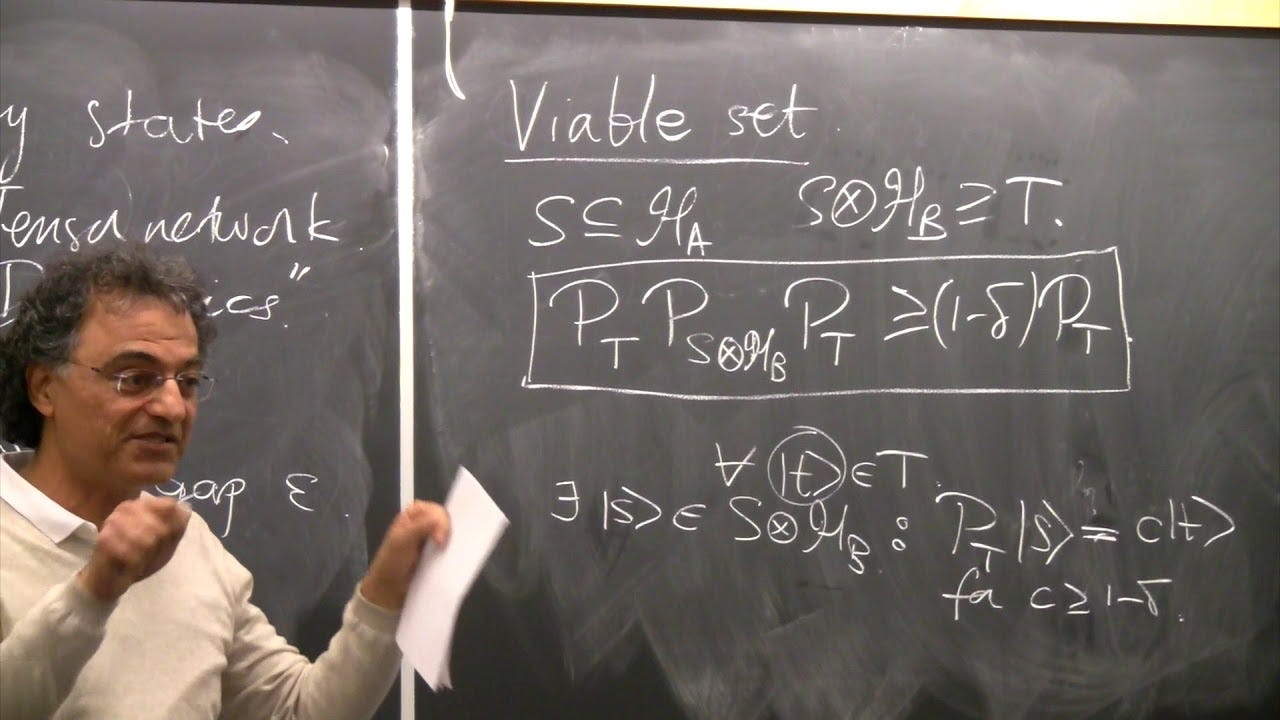 y states.
Tensor network
gap ε.
Viable set.
S ⊆ ℋ_A S⊗ℋ_B ≥ T.
P_T P_{S⊗ℋ_B} P_T ≥ (1-δ) P_T
∀ |t> ∈ T.
∃ |s> ∈ S⊗ℋ_B : P_T |s> = c|t>
for c ≥ 1-δ.